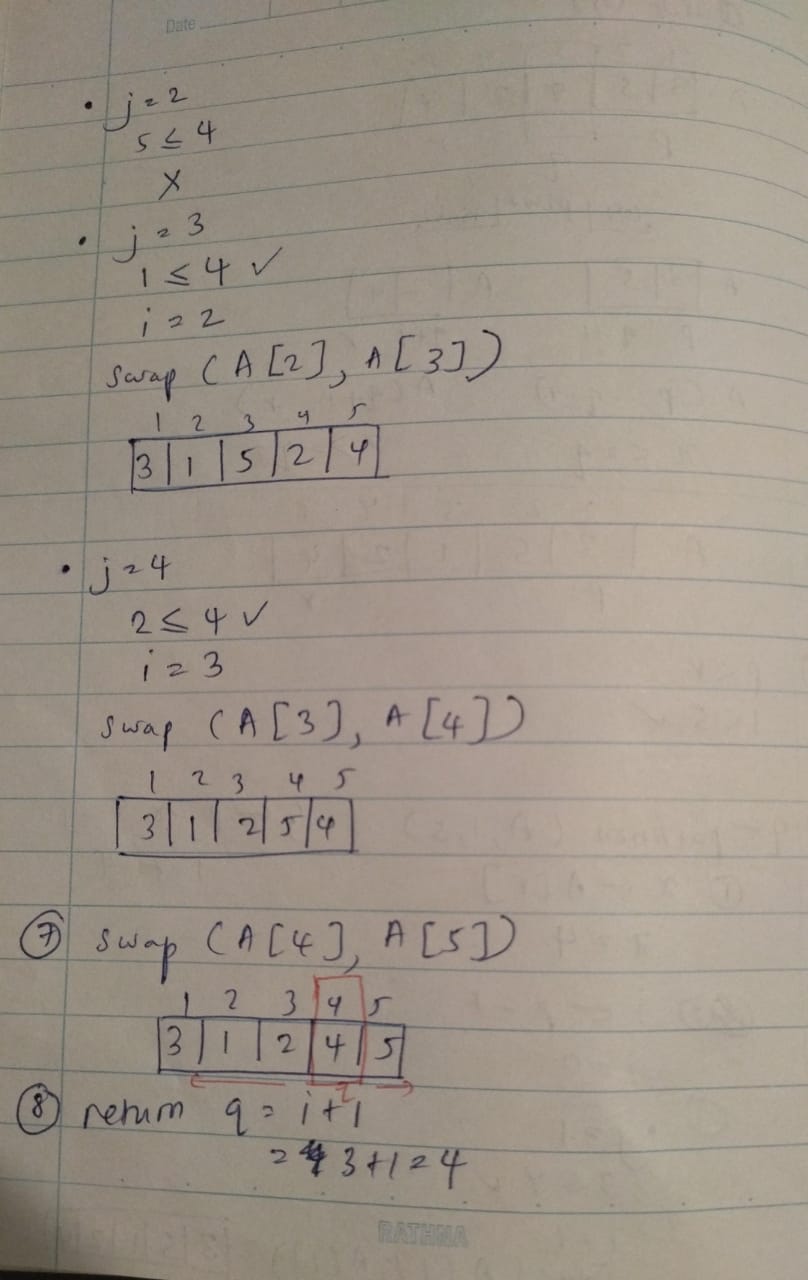 Date
• j = 2
5 ≤ 4
X
• j = 3
1 ≤ 4 ✓
i = 2
swap (A[2], A[3])
1 2 3 4 5
3 | 1 | 5 | 2 | 4
• j = 4
2 ≤ 4 ✓
i = 3
swap (A[3], A[4])
1 2 3 4 5
3 | 1 | 2 | 5 | 4
⑦ swap (A[4], A[5])
1 2 3 4 5
3 | 1 | 2 | 4 | 5
⑧ return q = i+1
= 3+1 = 4
RATHNA